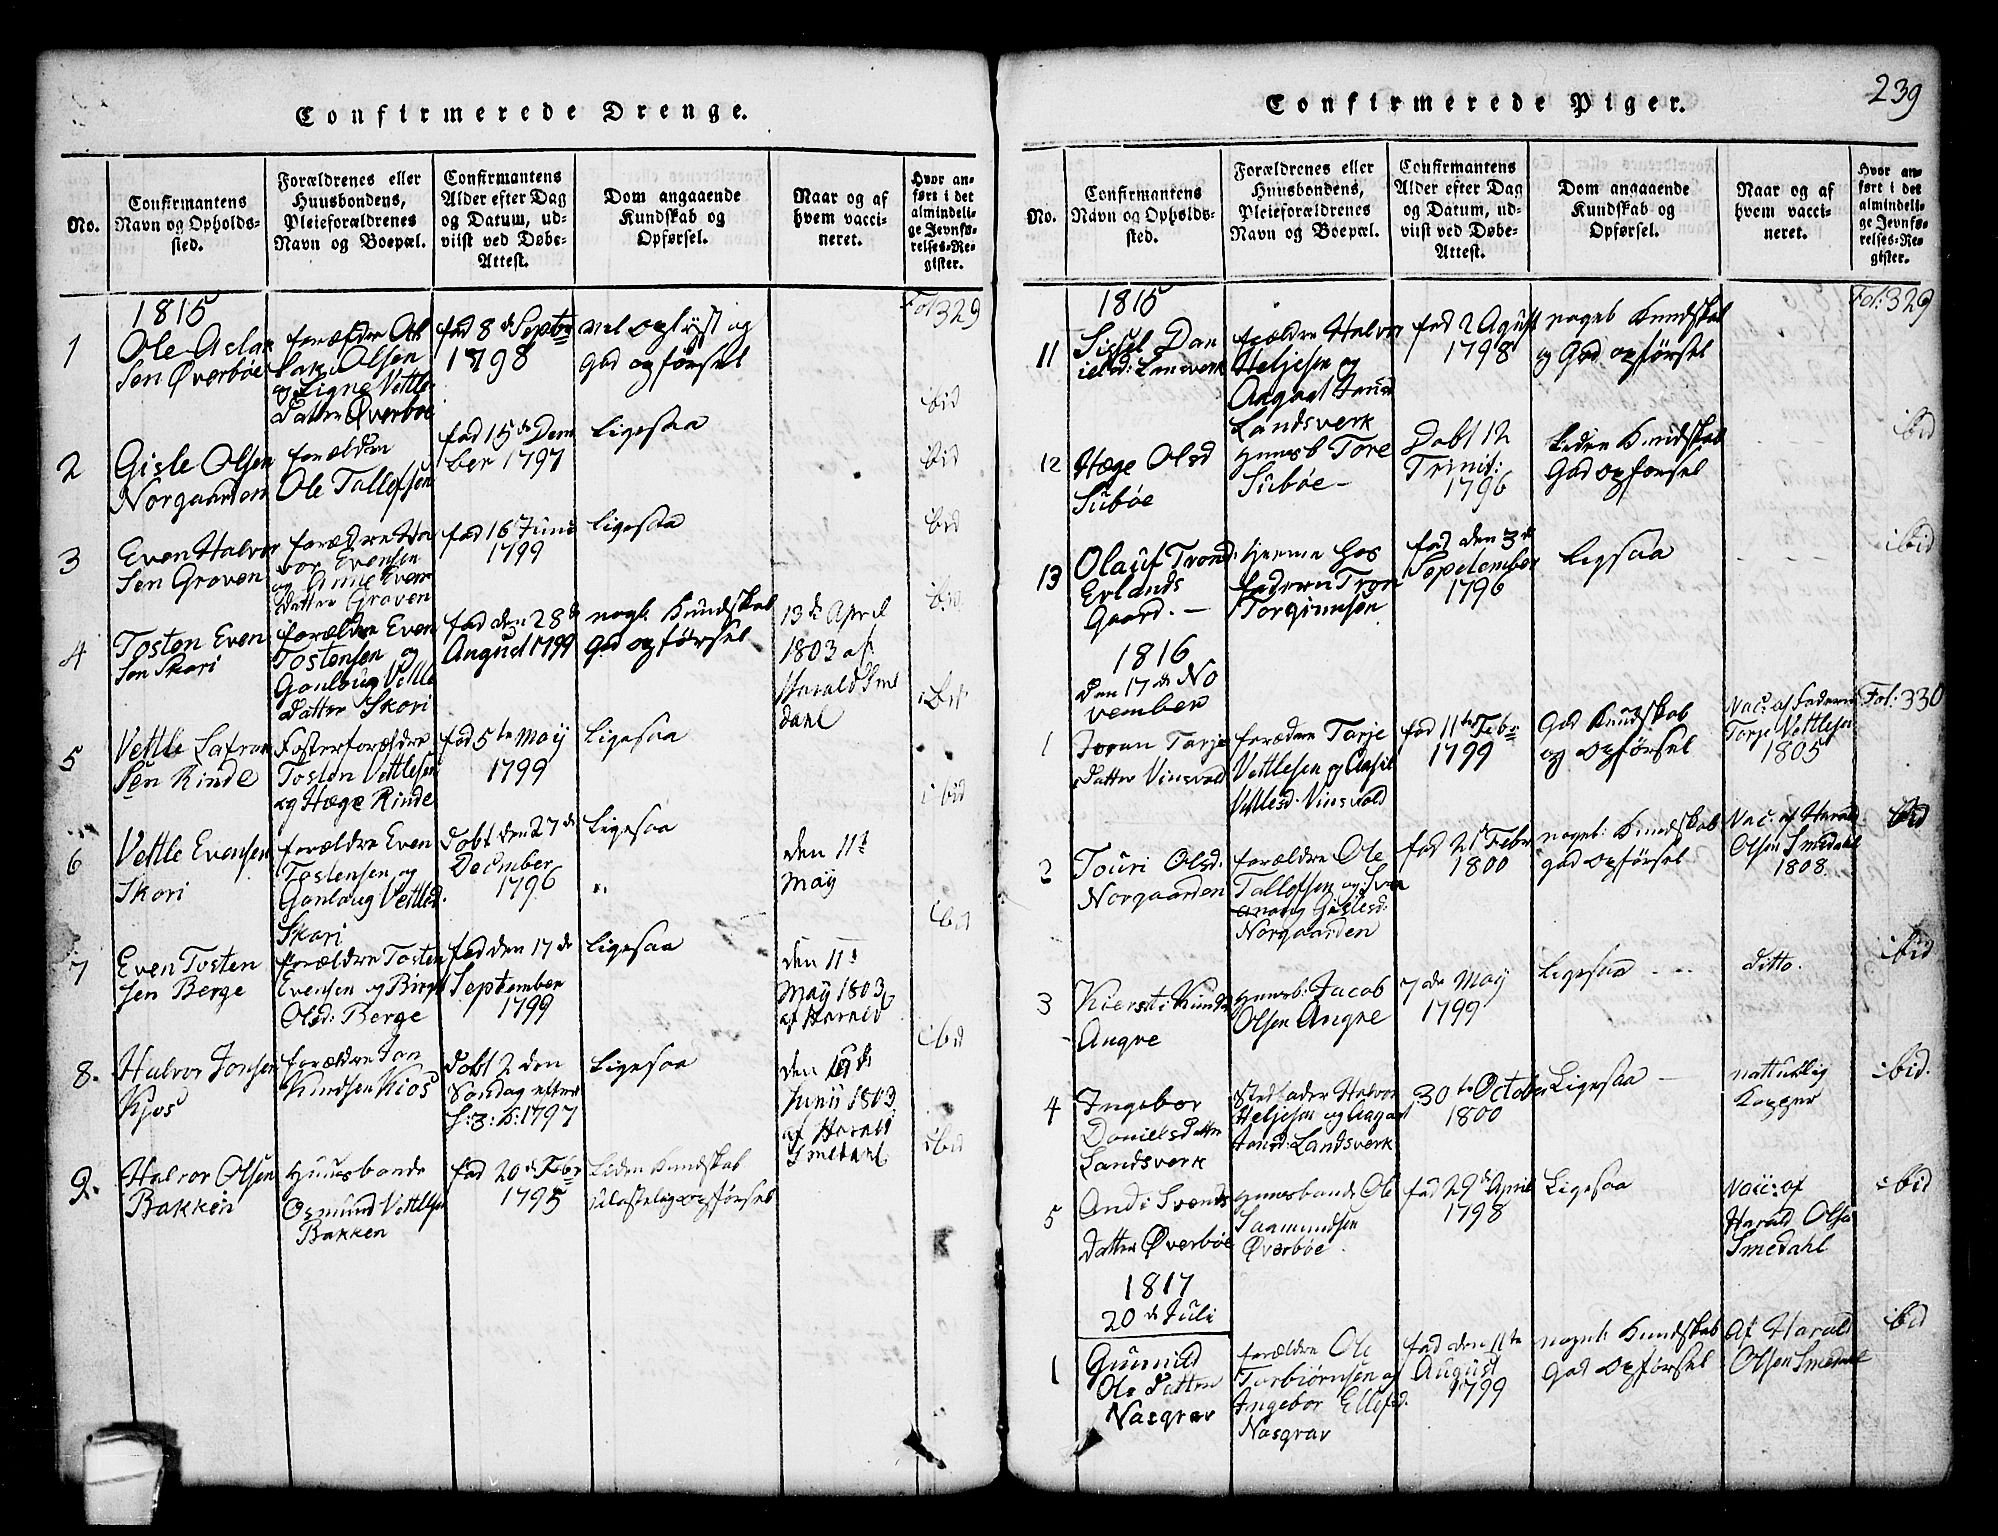 239
Confirmerede Drenge.
No.
Confirmantens
Navn og Opholds-
sted.
Forældrenes eller
Huusbondens,
Pleieforældrenes
Navn og Boepæl.
Confirmantens
Alder efter Dag
og Datum, ud-
viist ved Døbe-
Attest.
Dom angaaende
Kundskab og
Opførsel.
Naar og af
hvem vacci-
neret.
Hvor an-
ført i det
almindeli-
ge Jevnfø-
relses-Re-
gister.
1815
1
Ole Aslak
Sen Øverbøe
forældre
Olsen
og Signe Vettle
Datter Øverboe
fød 8 d Septbr
1798
vel oplyst og
God opførsel
Fol 329
2
Gisle Olsen
Norgaarden
forældre
Ole Tallefsen
fød 15 d Dem
ber 1797
Ligesaa
ibid
3
Even Halvor
Sen Groven
forældre Hal
vor Evensen
og Anne Even
Datter Groven
fød 16 Junii
1799
Ligesaa
ibid
4
Tosten Even
Sen Skori
forældre Even
Tostensen og
Gonloug Vettle
Datter Skori
fød den 28 d
August 1799
nogl. Kundskab
God opførsel
13 d April
1803 af
Harald Sme
dahl
ibid
5
Vettle Lafran
Sen Rinde
Fosterforældre
Tosten Vettlesen
og Hæge Rinde
fød 5 te Maij
1799
Ligesaa
ibid
6
Vettle Evensen
Skori
forældre Even
Tostensen og
Gonloug Vettlesd.
Skori
Døbt den 27 de
December
1796
Ligesaa
den 11 t
Maÿ
ibid
7
Even Tosten
Sen Berge
forældre Tosten
Evensen og Birgit
Olsd: Berge
fød den 17 de
September
1799
Ligesaa
den 11 t
Maÿ 1803
af Harald
ibid
8.
Halvor Jonsen
Kjos
forældre Jon
Knudsen Kios
Døbt 2 den
Søndag efter
H: 3: K: 1797
Ligesaa
den
Junii 1803
af Harald
Smedahl
ibid
9.
Halvor Olsen
Bakken
Huusbonde
Osmund Vettlesen
Bakken
fød 20 d Febr
1795
Liden Kundskab
ulastelig opførsel
ibid
Confirmerede Piger.
No.
Confirmantens
Navn og Opholds-
sted.
Forældrenes eller
Huusbondens,
Pleieforældrenes
Navn og Boepæl.
Confirmantens
Alder efter Dag
og Datum, ud-
viist ved Døbe-
Attest.
Dom angaaende
Kundskab og
Opførsel.
Naar og af
hvem vacci-
neret.
Hvor an-
ført i det
almindeli-
ge Jevnfø-
relses-Re-
gister.
1815
11
Sissel Dan
ielsd: Lansverk
forældre Halvor
Heljesen og
Aagaat Jonsd
Landsverk
fød 2 Agust
1798
nogeb Kundskab
og God opførsel
Fol: 329
12
Hæge Olsd
Suboe
Huusb Tore
Suboe
Døbt 12
Trinit:
1796
Liden Kundskab
God opførsel
ibid
13
Olauf Trond:
Erlands
Gaard.
hjeme hos
faderen Tron
Torgrimsen
fød den 3 d
Sepetember
1796
Ligsaa
ibid
1816
Den 17 de No
vember
1
Joran Tarje
Datter Vinsvold
forældre Tarje
Vettlesen og Aasil
Vettlesd. Vinsvold
fød 11 te Febr
1799
God Kundskab
og opførsel
Vac: af Faderen
Torje Vettlesen
1805
Fol: 330
2
Touri Olsd:
Norgaarden
forældre Ole
Tallefsen og
Gislesd:
Norgaarden
fød 21 Febr
1800
nogeb: Kundskab
god opførsel
Vac: af Harald
Olsen Smedahl
1808.
ibid
3
Kiersti Knuds
Angre
Huusb: Jacob
Olsen Angre
7 de Maÿ
1799
Ligesaa
ditto.
ibid
4
Ingebor
Danielsdatter
Landsverk
Stedfader Halvor
Heljesen og Aagaat
Jonsd: Landsverk
30 te October
1800
Ligesaa
nattuklig
Kopper
ibid.
5
Andi Svends
Datter Øverbøe
Huusbonde Ole
Saamundsen
Øverbøe
fød 29 d April
1798
Ligesaa
Vaic: af
Harald Olse
Smedahl
ibid
1817
20 d Juli
1
Gunnild
Ole Datter
Nasgrav
forældre Ole
Torbiørnsen og
Ingebor Ellefsd.
Nasgrav
fød den 11 te
August
1799
nogeb: Kundskab
God opførsel
Af Harald
Olsen Smedahl
ibid